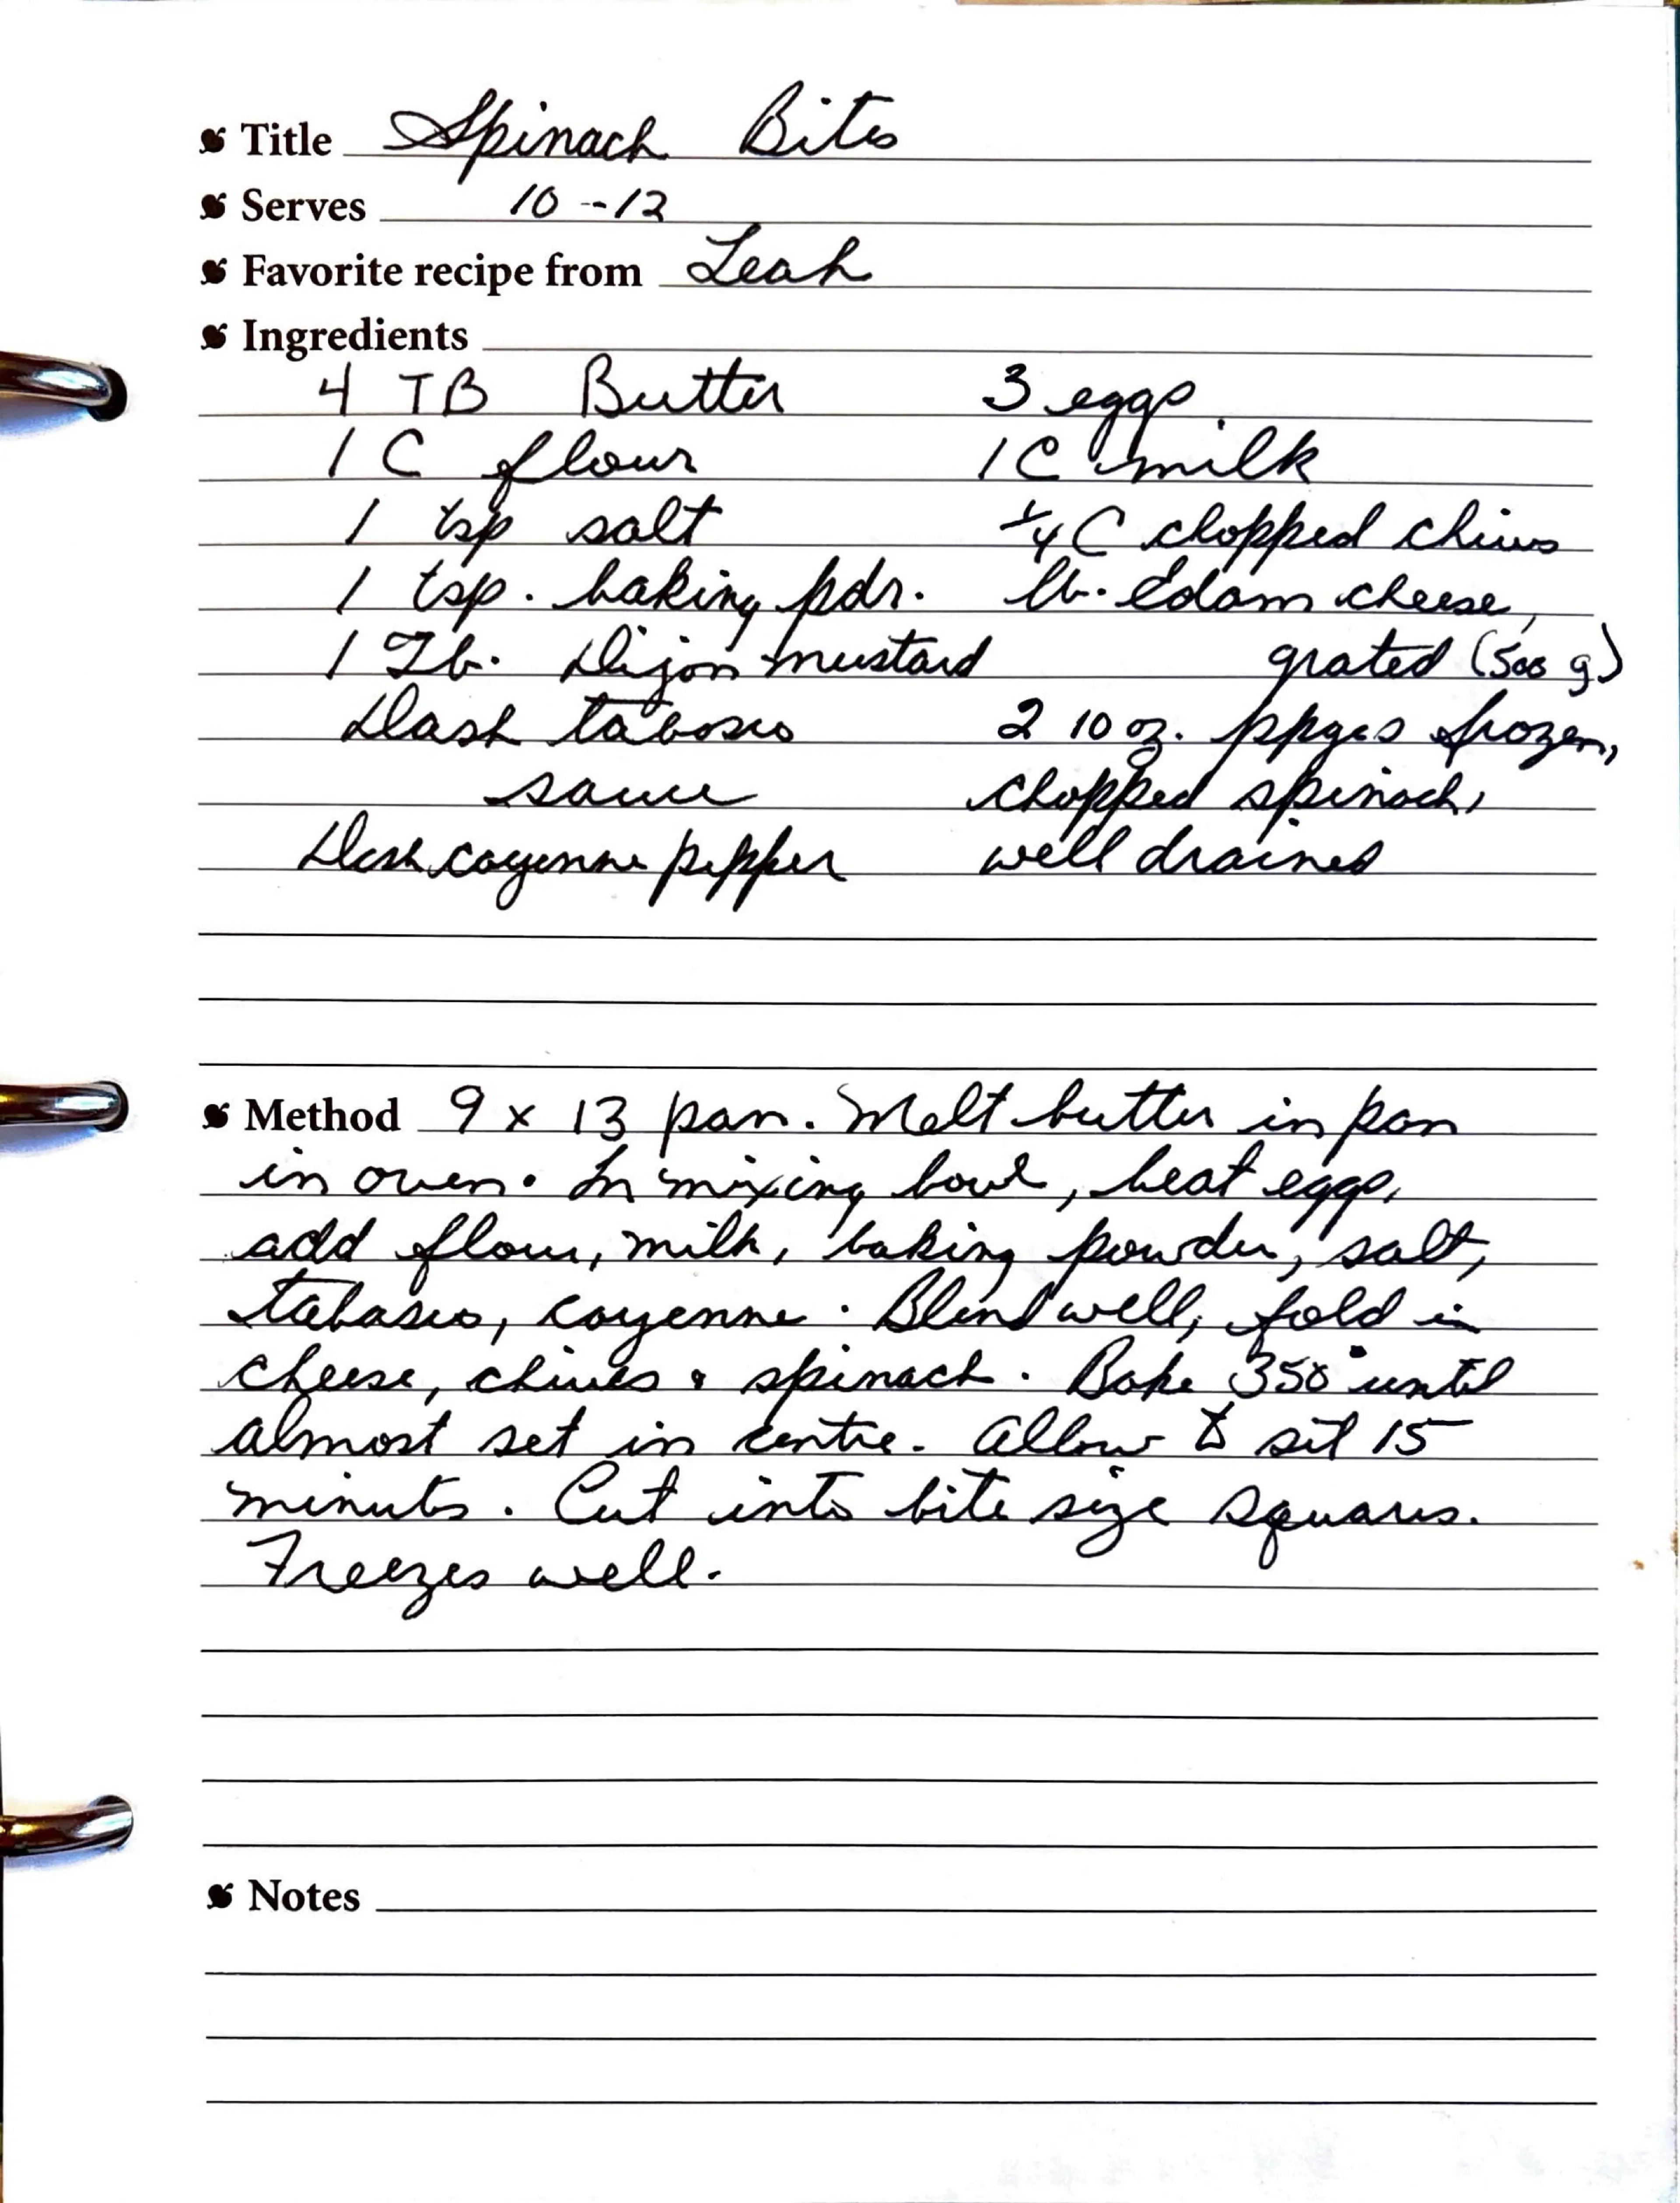 Title Spinach Bites
Serves 10--12
Favorite recipe from Leah
Ingredients
4 TB Butter 3 eggs
1 C flour 1 C milk
1 tsp salt 1/4 C chopped chives
1 tsp. baking pdr. lb. Edam cheese,
1 Tb. Dijon mustard grated (500 g)
Dash tabasco 2 10 oz. ppges frozen,
sauce chopped spinach,
Dash cayenne pepper well drained
Method 9 x 13 pan. Melt butter in pan
in oven. In mixing bowl, beat eggs,
add flour, milk, baking powder, salt,
tabasco, cayenne. Blend well, fold in
cheese, chives & spinach. Bake 350° until
almost set in centre. Allow to sit 15
minutes. Cut into bite size squares.
Freezes well.
Notes